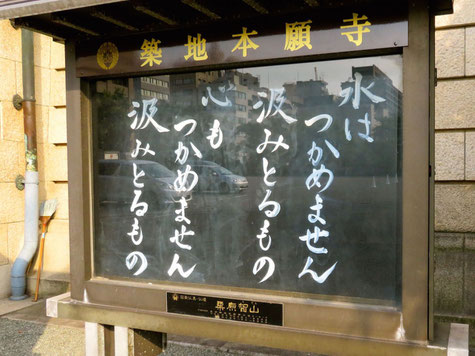 築地本願寺
水は
つかめません
汲みとるもの
心も
つかめません
汲みとるもの